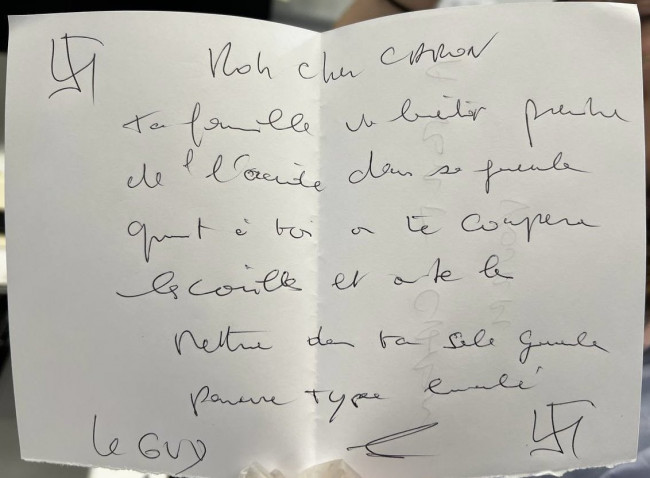 Mon cher CARON
ta famille va bientôt prendre
de l'acide dans sa gueule
quant à toi on te coupera
les couilles et on te les
mettra dans ta sale gueule
pauvre type enculé
Le GUY